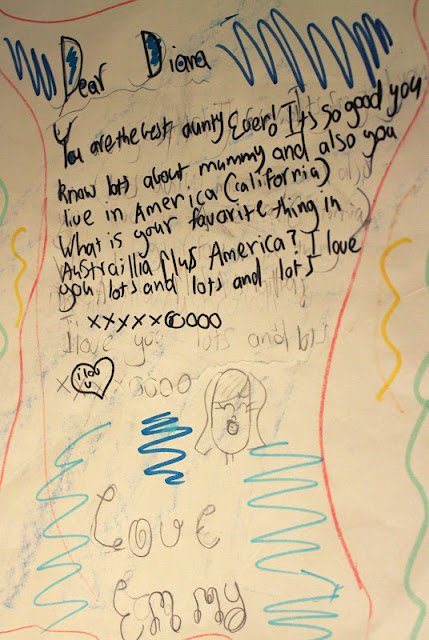 Dear Diana
You are the best aunty Ever! Its so good you
know lots about mummy and also you
live in America (california)
What is your favorite thing in
Austraillia Plus America? I love
you lots and lots and lots
xxxxxoooo
i lov
u
Love